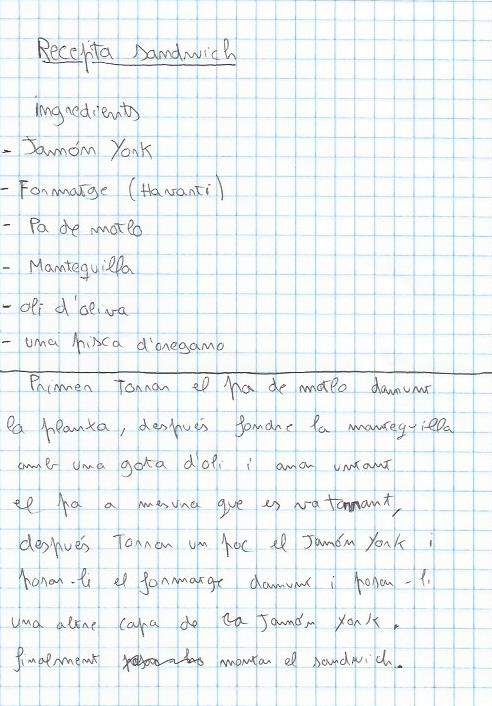 Recepta sandwich
ingredients
- Jamón York
- Formatge (Havanti)
- Pa de motlo
- Mantequilla
- oli d'oliva
- una pisca d'oregano
Primer torrar el pa de motlo damunt
la planxa, después fondre la mantequilla
amb una gota d'oli i anar untant
el pa a mesura que es va torrant,
después Torrar un poc el Jamón York i
posar-li el formatge damunt i posar-li
una altre capa de Jamón York.
finalment montar el sandwich.